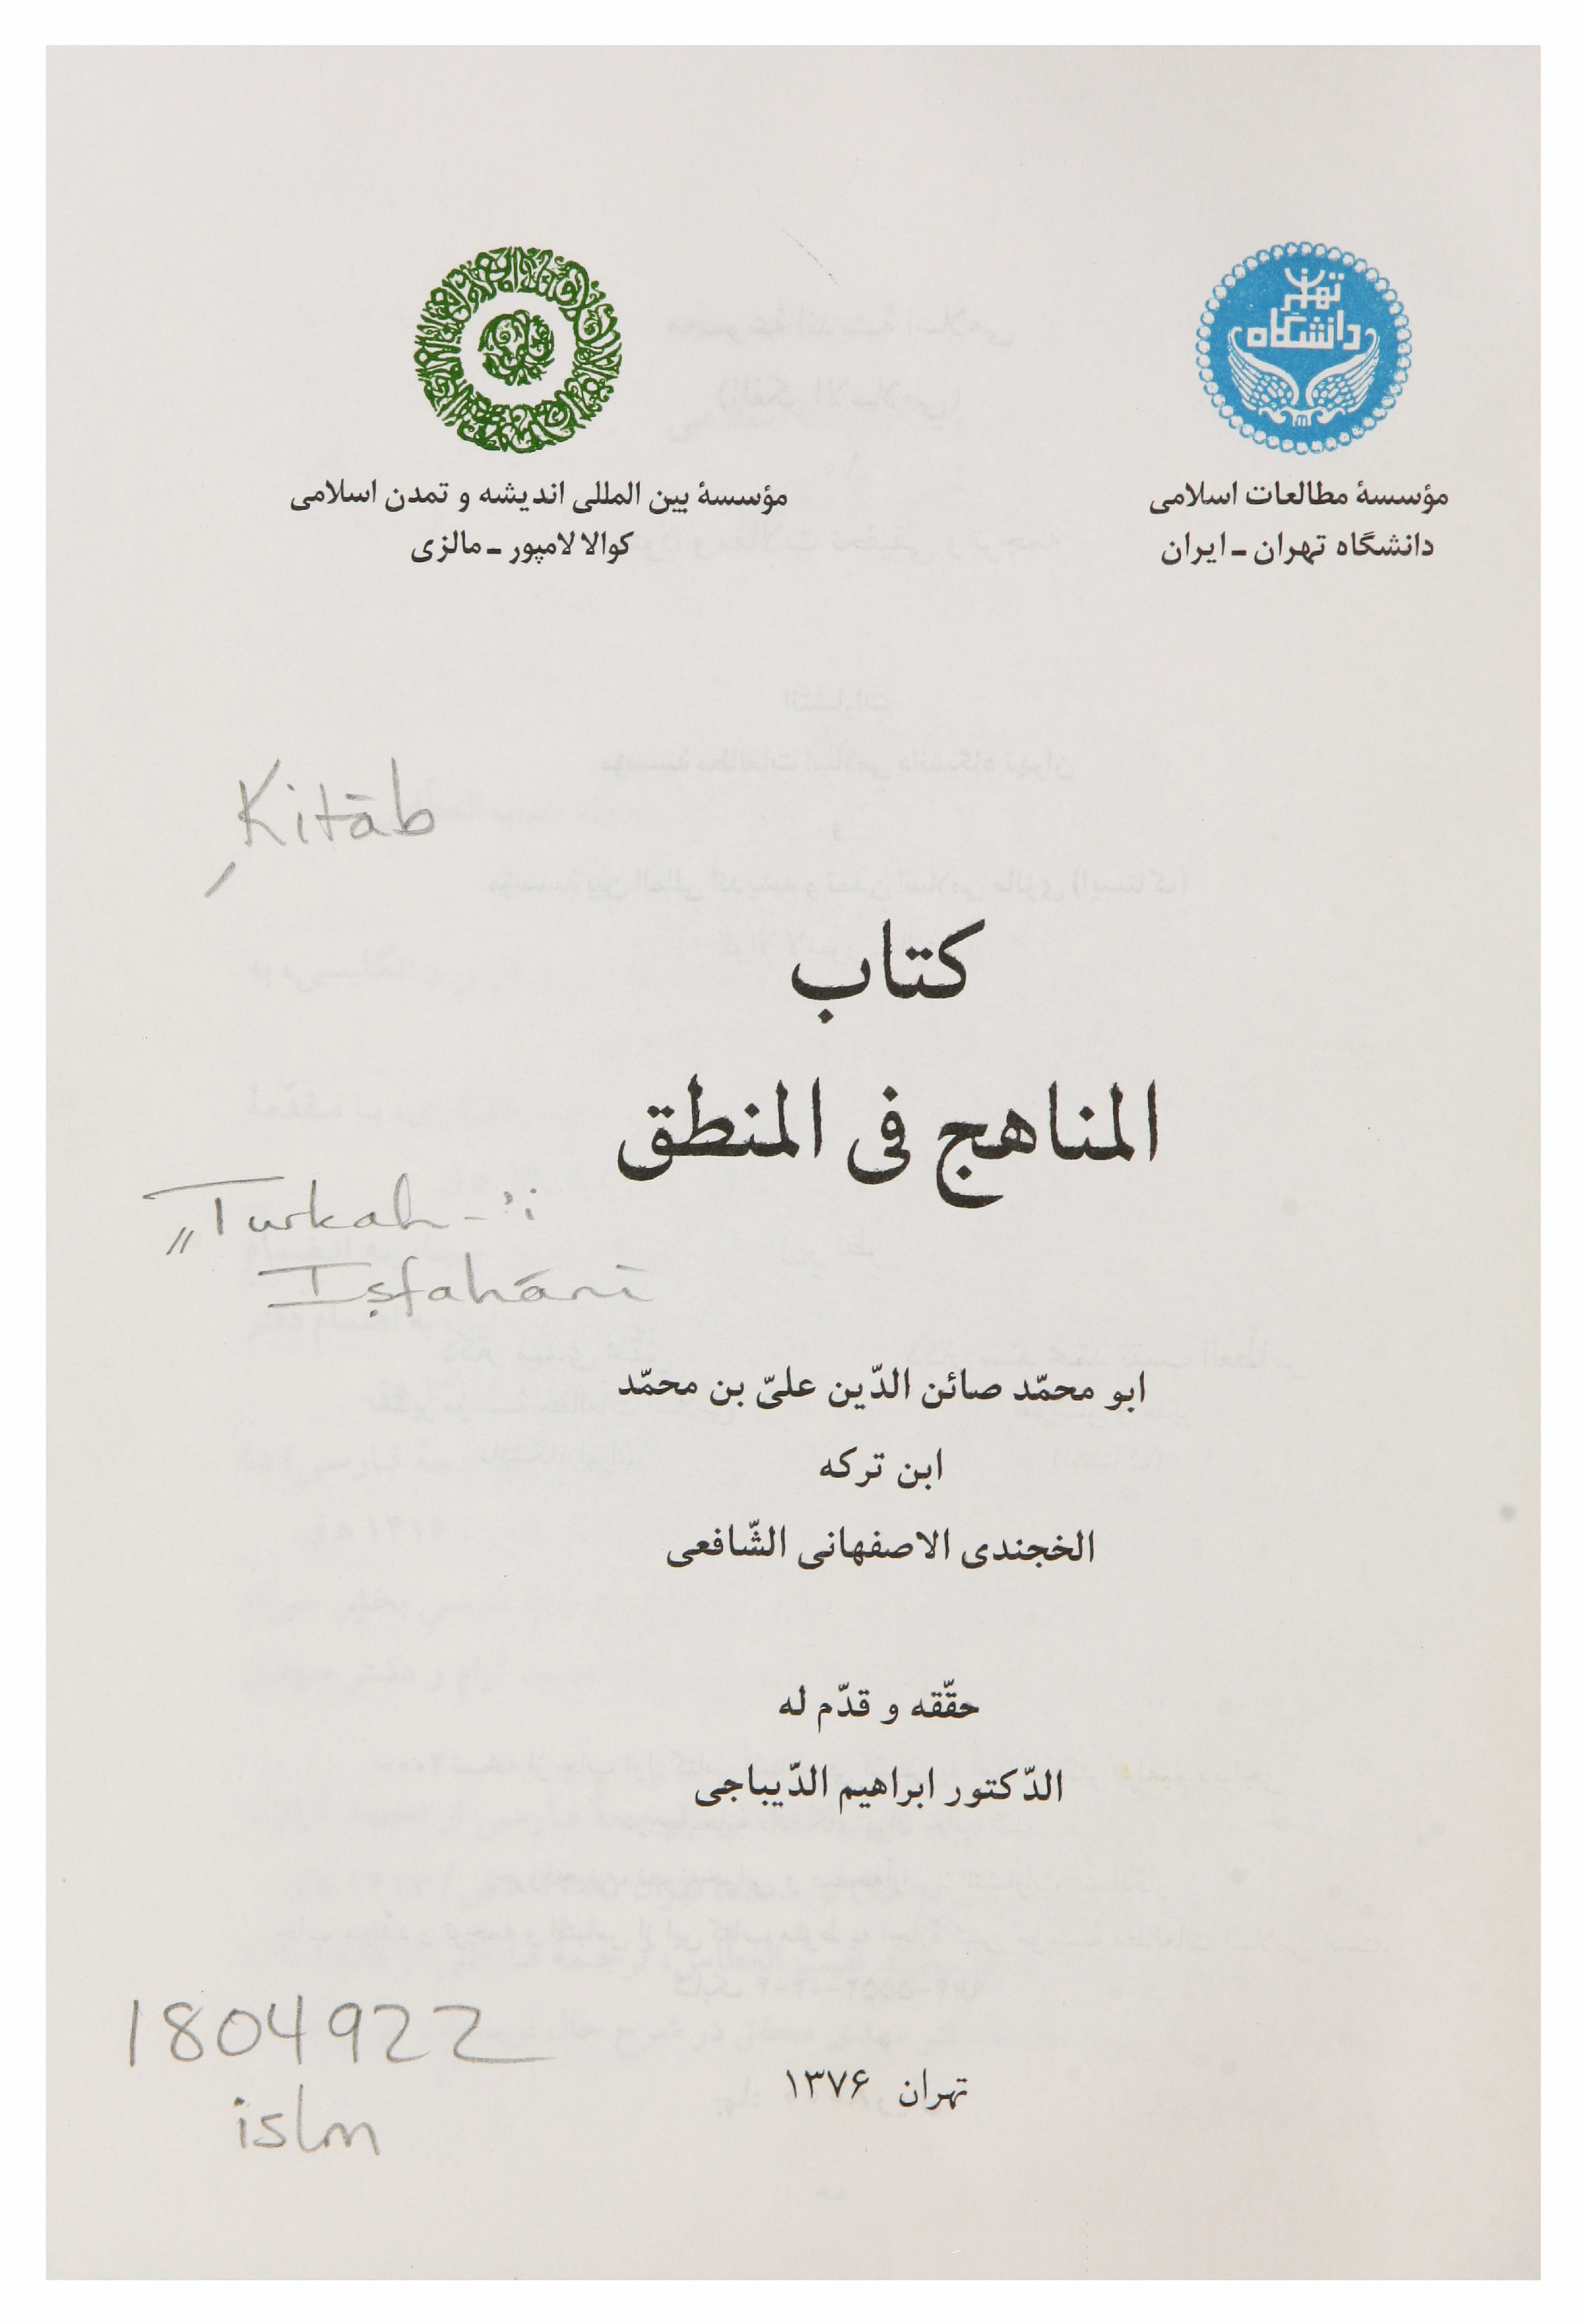 تهران
دانشگاه
مؤسسهٔ مطالعات اسلامی
دانشگاه تهران ـ ایران
مؤسسهٔ بین المللی اندیشه و تمدن اسلامی
کوالا لامپور ـ مالزی
Kitāb
کتاب
المناهج فی المنطق
Turkah-ʼi
Iṣfahānī
ابو محمّد صائن الدّین علیّ بن محمّد
ابن ترکه
الخجندی الاصفهانی الشّافعی
حقّقه و قدّم له
الدّکتور ابراهیم الدّیباجی
1804922
islm
تهران ۱۳۷۶